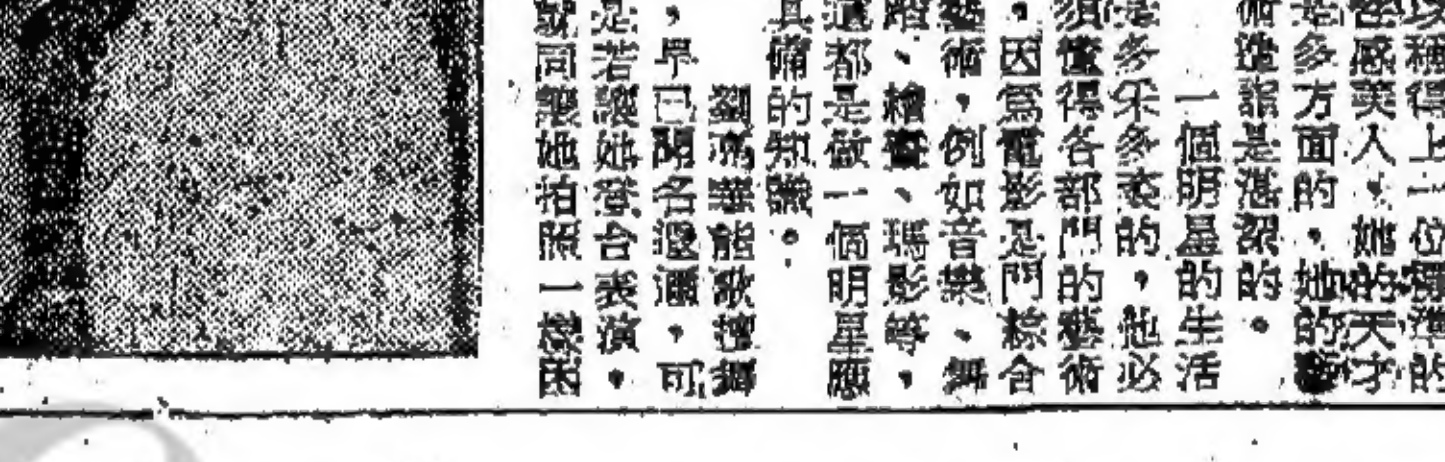 以稱得上一位標準的
感美人,她的天才
是多方面的,她的藝
術造詣是湛深的。
一個明星的生活
是多采多姿的,他必
須懂得各部門的藝術
,因爲電影是門綜合
藝術,例如音樂、舞
蹈、繪畫、攝影等,
這都是做一個明星應
具備的知識。
劉亮華能歌擅舞
,早已聞名遐邇,可
是若讓她登台表演,
就同讓她拍照一樣困